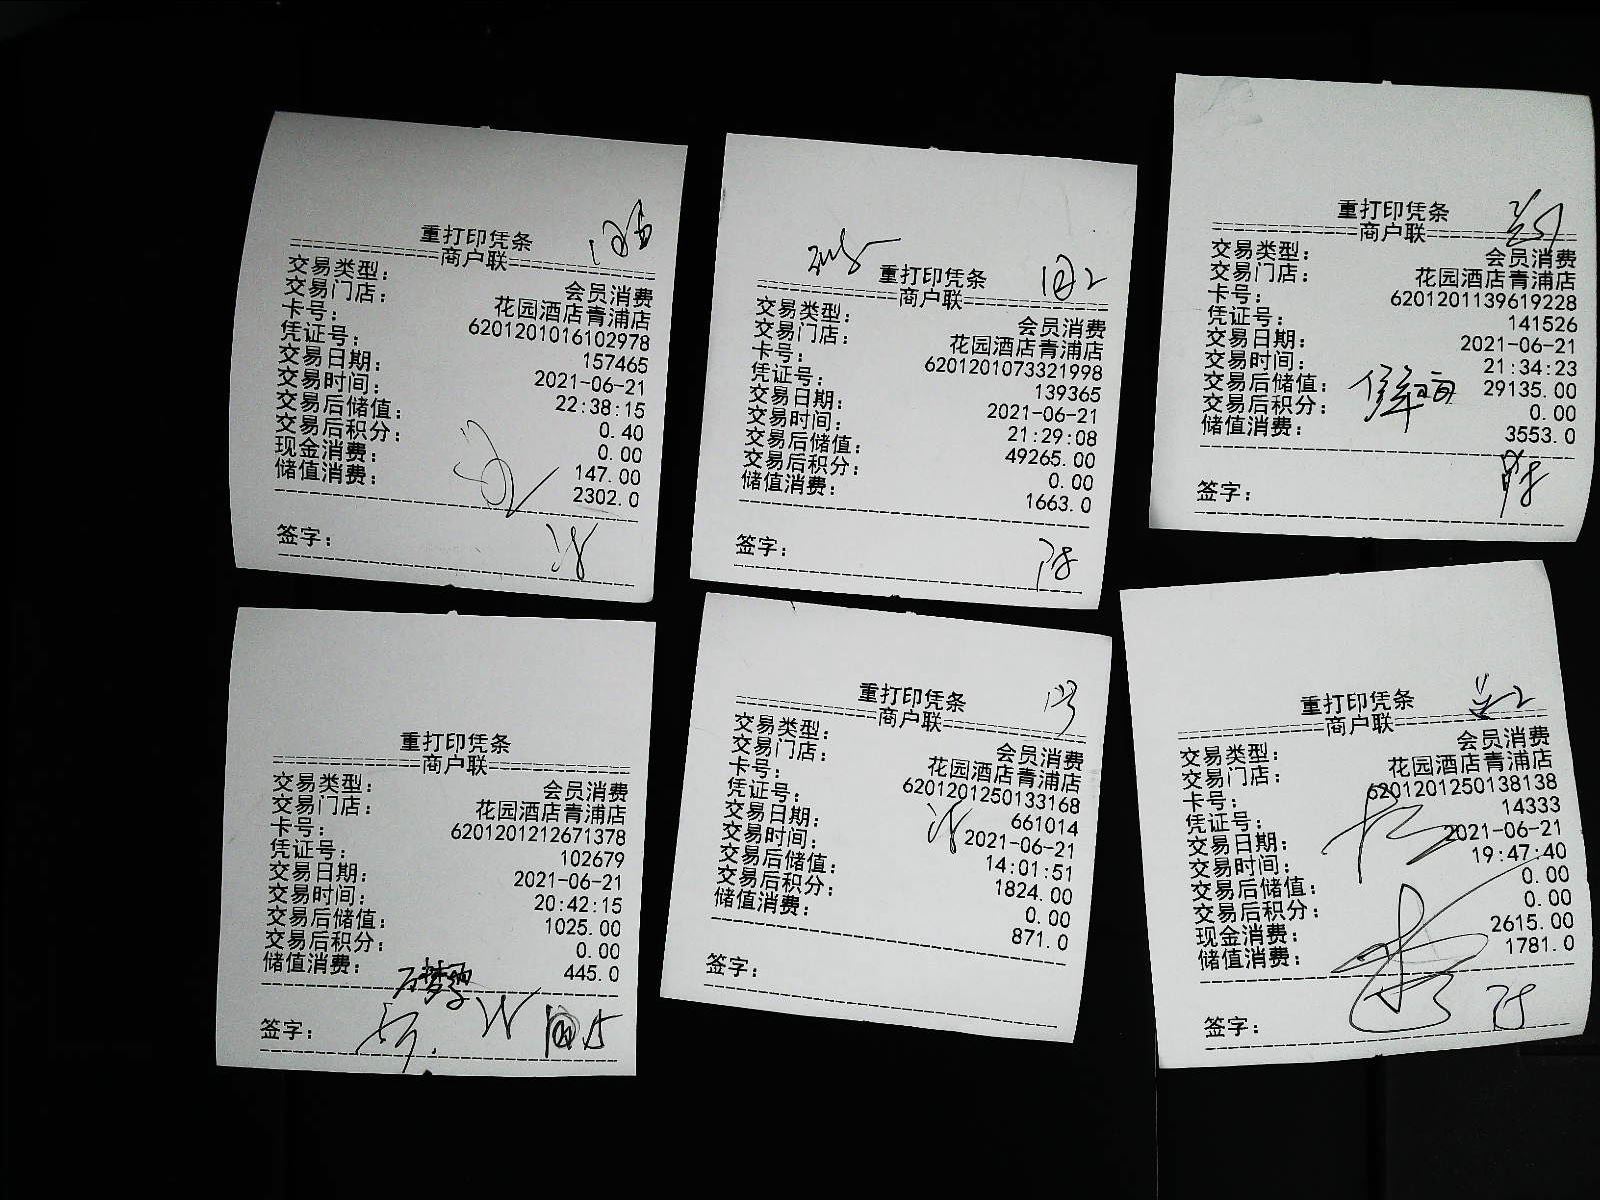 重打印凭条
商户联
交易类型： 会员消费
交易门店： 花园酒店青浦店
卡号： 6201201016102978
凭证号： 157465
交易日期： 2021-06-21
交易时间： 22:38:15
交易后储值： 0.40
交易后积分： 0.00
现金消费： 147.00
储值消费： 2302.0
签字：
重打印凭条
商户联
交易类型： 会员消费
交易门店： 花园酒店青浦店
卡号： 6201201073321998
凭证号： 139365
交易日期： 2021-06-21
交易时间： 21:29:08
交易后储值： 49265.00
交易后积分： 0.00
储值消费： 1663.0
签字：
重打印凭条
商户联
交易类型： 会员消费
交易门店： 花园酒店青浦店
卡号： 6201201139619228
凭证号： 141526
交易日期： 2021-06-21
交易时间： 21:34:23
交易后储值： 29135.00
交易后积分： 0.00
储值消费： 3553.0
签字：
重打印凭条
商户联
交易类型： 会员消费
交易门店： 花园酒店青浦店
卡号： 6201201212671378
凭证号： 102679
交易日期： 2021-06-21
交易时间： 20:42:15
交易后储值： 1025.00
交易后积分： 0.00
储值消费： 445.0
签字：
重打印凭条
商户联
交易类型： 会员消费
交易门店： 花园酒店青浦店
卡号： 6201201250133168
凭证号： 661014
交易日期： 2021-06-21
交易时间： 14:01:51
交易后储值： 1824.00
交易后积分： 0.00
储值消费： 871.0
签字：
重打印凭条
商户联
交易类型： 会员消费
交易门店： 花园酒店青浦店
卡号： 6201201250138138
凭证号： 14333
交易日期： 2021-06-21
交易时间： 19:47:40
交易后储值： 0.00
交易后积分： 0.00
现金消费： 2615.00
储值消费： 1781.0
签字：